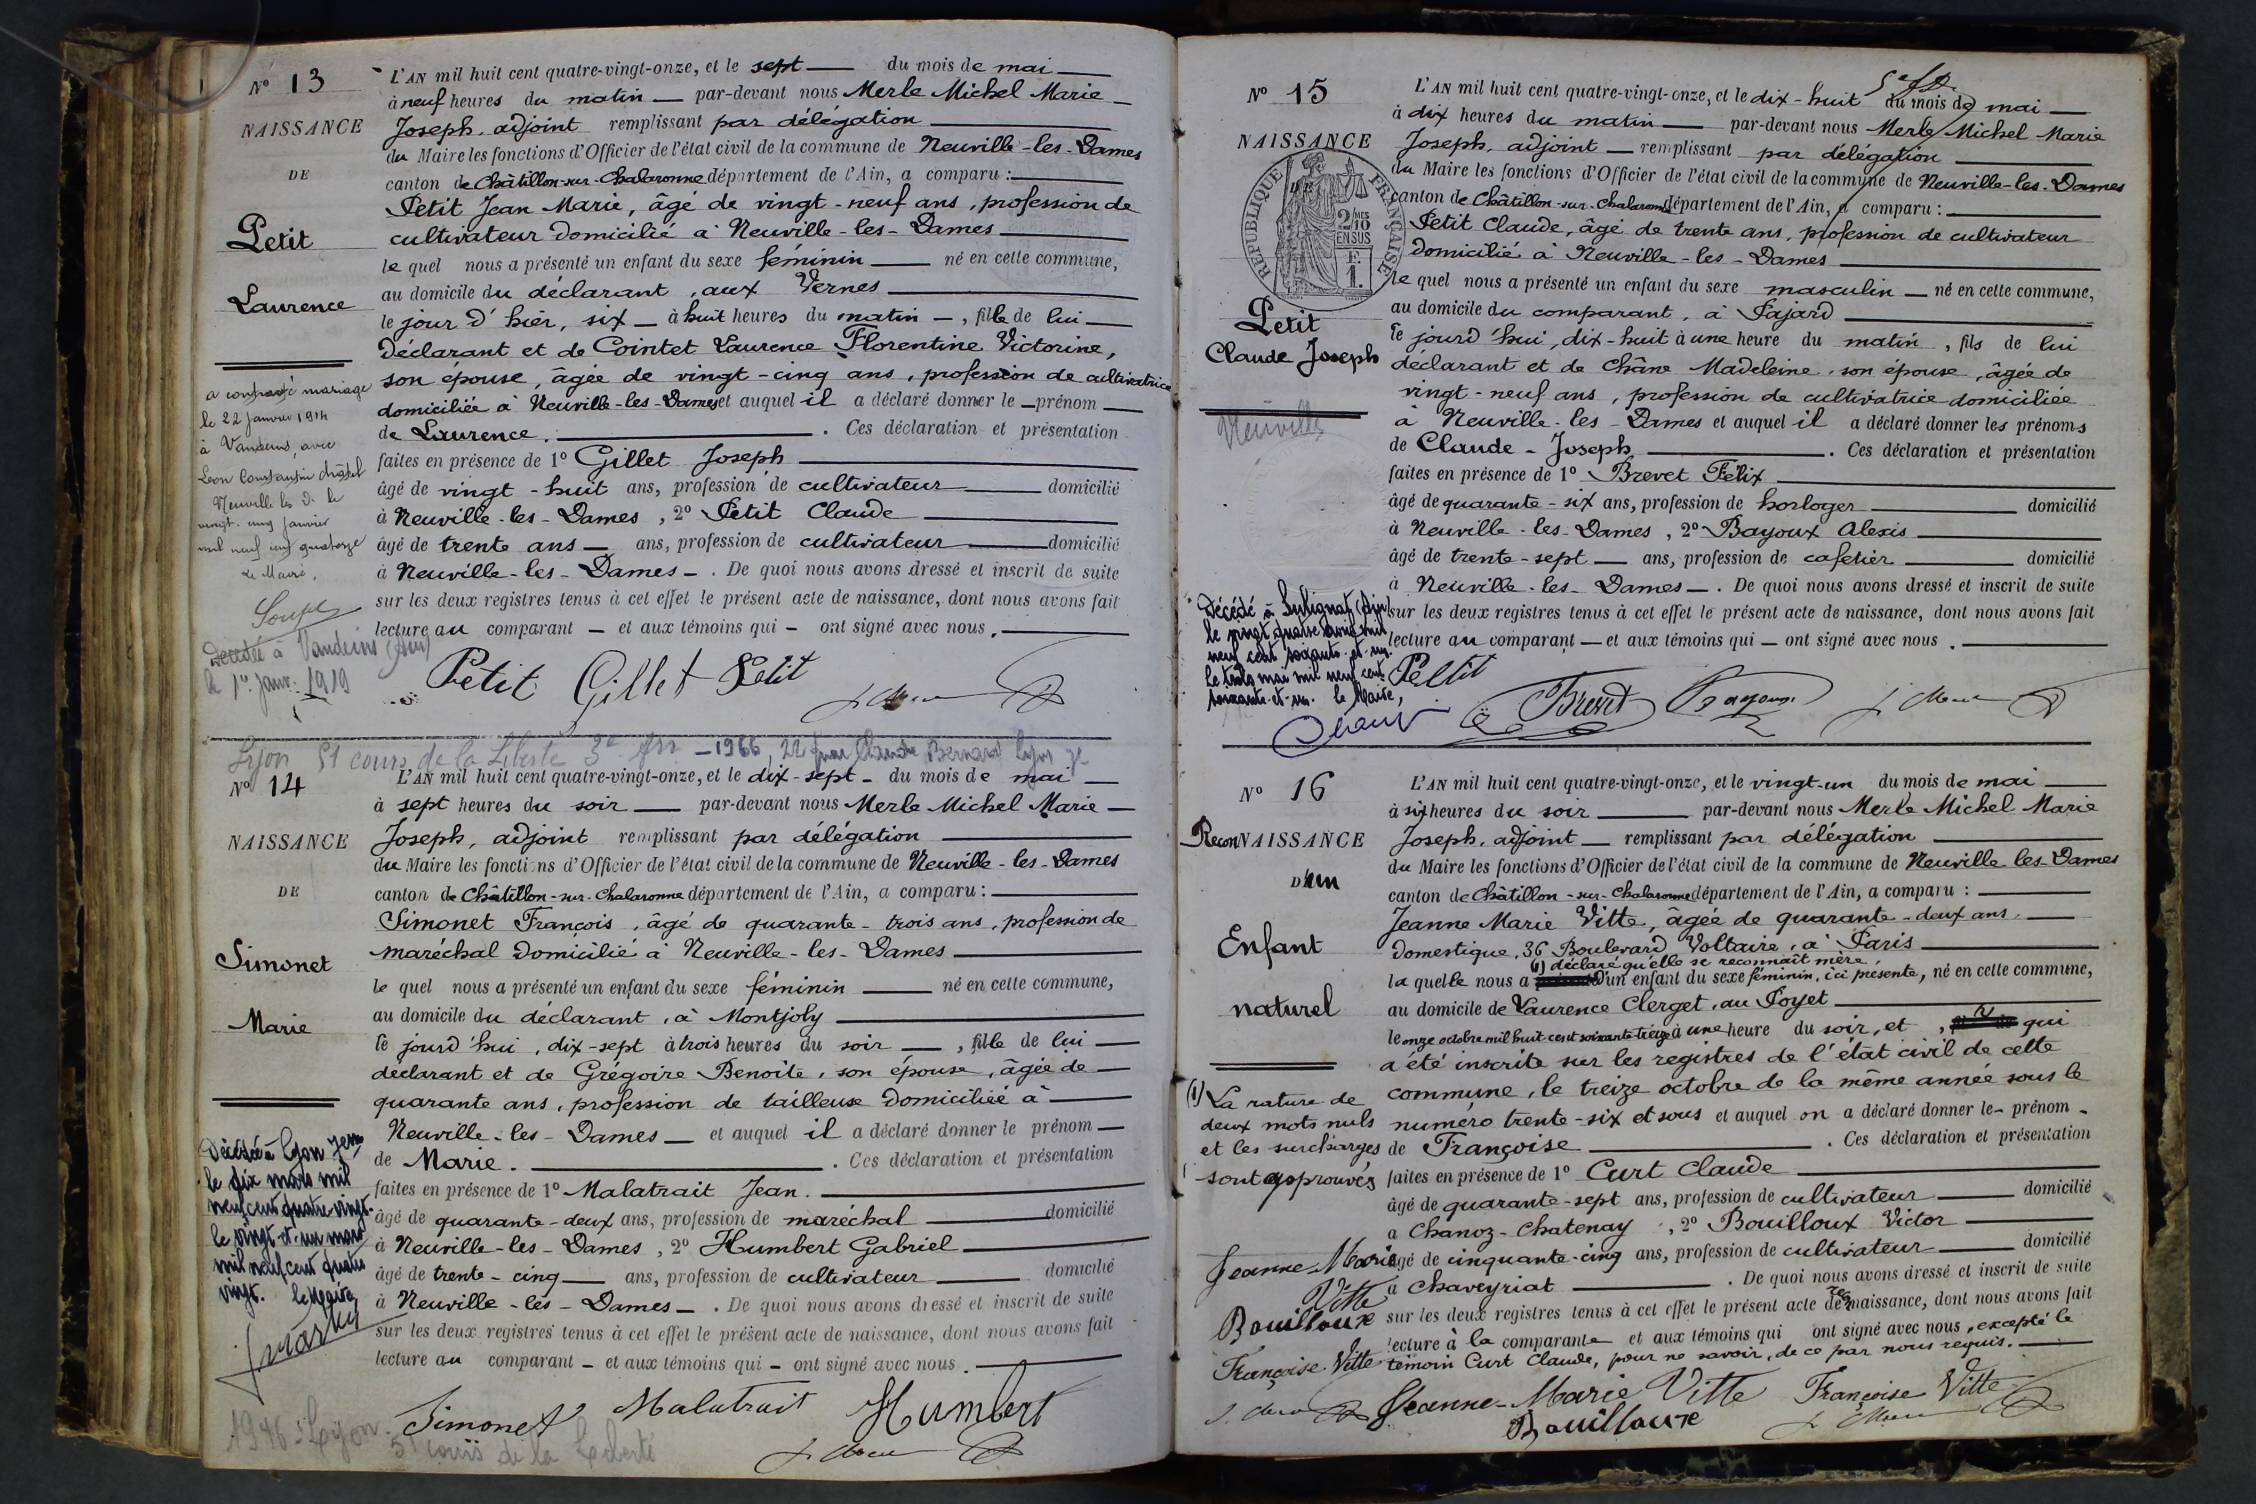 N° 13
NAISSANCE
DE
Petit
Laurence
L'AN mil huit cent quatre-vingt-onze, et le sept du mois de mai
à neuf heures du matin par-devant nous Merle Michel Marie
Joseph, adjoint remplissant par délégation
du Maire les fonctions d'Officier de l'état civil de la commune de Neuville-les-Dames
canton de Châtillon-sur-Chalaronne département de l'Ain, a comparu :
Petit Jean Marie, âgé de vingt-neuf ans, profession de
cultivateur domicilié à Neuville-les-Dames
le quel nous a présenté un enfant du sexe féminin né en cette commune,
au domicile du déclarant, aux Vernes
le jour d'hier, six à huit heures du matin, fille de lui
déclarant et de Cointet Laurence Florentine Victorine,
son épouse, âgée de vingt-cinq ans, profession de cultivatrice
domiciliée à Neuville-les-Dames et auquel il a déclaré donner le prénom
de Laurence. Ces déclaration et présentation
faites en présence de 1° Gillet Joseph
âgé de vingt-huit ans, profession de cultivateur domicilié
à Neuville-les-Dames, 2° Petit Claude
âgé de trente ans ans, profession de cultivateur domicilié
à Neuville-les-Dames. De quoi nous avons dressé et inscrit de suite
sur les deux registres tenus à cet effet le présent acte de naissance, dont nous avons fait
lecture au comparant et aux témoins qui ont signé avec nous.
Petit Gillet Petit
a contracté mariage
le 22 janvier 1914
à Vandeins, avec
Léon Constantin
Neuville les D. le
vingt-cinq janvier
mil neuf cent quatorze
Le Maire,
Décédée à Vandeins (Ain)
le 1er janv. 1919
Lyon 51 cours de la Liberté 3e Arr - 1966, 22 quai Claude Bernard Lyon 7e
N° 14
NAISSANCE
DE
Simonet
Marie
L'AN mil huit cent quatre-vingt-onze, et le dix-sept du mois de mai
à sept heures du soir par-devant nous Merle Michel Marie
Joseph, adjoint remplissant par délégation
du Maire les fonctions d'Officier de l'état civil de la commune de Neuville-les-Dames
canton de Châtillon-sur-Chalaronne département de l'Ain, a comparu :
Simonet François, âgé de quarante-trois ans, profession de
maréchal domicilié à Neuville-les-Dames
le quel nous a présenté un enfant du sexe féminin né en cette commune,
au domicile du déclarant, à Montjoly
le jourd'hui, dix-sept à trois heures du soir, fille de lui
déclarant et de Grégoire Benoite, son épouse, âgée de
quarante ans, profession de tailleuse domiciliée à
Neuville-les-Dames et auquel il a déclaré donner le prénom
de Marie. Ces déclaration et présentation
faites en présence de 1° Malatrait Jean.
âgé de quarante-deux ans, profession de maréchal domicilié
à Neuville-les-Dames, 2° Humbert Gabriel
âgé de trente-cinq ans, profession de cultivateur domicilié
à Neuville-les-Dames. De quoi nous avons dressé et inscrit de suite
sur les deux registres tenus à cet effet le présent acte de naissance, dont nous avons fait
lecture au comparant et aux témoins qui ont signé avec nous.
Simonet Malatrait Humbert
Décédée à Lyon 7em
le dix mars mil
neuf cent quatre-vingt.
le vingt-et-un mars
mil neuf cent quatre
vingt. Le Maire,
1946 : Lyon
51 cours de la Liberté
N° 15
NAISSANCE
DE
RÉPUBLIQUE FRANÇAISE
2/10 MES
EN SUS
F.
1.
Petit
Claude Joseph
Neuville
L'AN mil huit cent quatre-vingt-onze, et le dix-huit du mois de mai
à dix heures du matin par-devant nous Merle Michel Marie
Joseph, adjoint remplissant par délégation
du Maire les fonctions d'Officier de l'état civil de la commune de Neuville-les-Dames
canton de Châtillon-sur-Chalaronne département de l'Ain, a comparu :
Petit Claude, âgé de trente ans, profession de cultivateur
domicilié à Neuville-les-Dames
le quel nous a présenté un enfant du sexe masculin né en cette commune,
au domicile du comparant, à Fajard
le jourd'hui, dix-huit à une heure du matin, fils de lui
déclarant et de Châne Madeleine son épouse, âgée de
vingt-neuf ans, profession de cultivatrice domiciliée
à Neuville-les-Dames et auquel il a déclaré donner les prénoms
de Claude-Joseph. Ces déclaration et présentation
faites en présence de 1° Brevet Félix
âgé de quarante-six ans, profession de horloger domicilié
à Neuville-les-Dames, 2° Bayoux Alexis
âgé de trente-sept ans, profession de cafetier domicilié
à Neuville-les-Dames. De quoi nous avons dressé et inscrit de suite
sur les deux registres tenus à cet effet le présent acte de naissance, dont nous avons fait
lecture au comparant et aux témoins qui ont signé avec nous.
Petit Brevet Bayoux
Décédé à Sulignat (Ain)
le vingt quatre avril mil
neuf cent soixante-et-un.
le trois mai mil neuf cent
soixante-et-un. le Maire,
N° 16
ReconNAISSANCE
D'un
Enfant
naturel
L'AN mil huit cent quatre-vingt-onze, et le vingt-un du mois de mai
à six heures du soir par-devant nous Merle Michel Marie
Joseph, adjoint remplissant par délégation
du Maire les fonctions d'Officier de l'état civil de la commune de Neuville les-Dames
canton de Châtillon-sur-Chalaronne département de l'Ain, a comparu :
Jeanne Marie Vitte, âgée de quarante-deux ans,
domestique, 36 Boulevard Voltaire, à Paris
(1) déclaré qu'elle se reconnait mère,
la quelle nous a d'un enfant du sexe féminin, ici présente, né en cette commune,
au domicile de Laurence Clerget, au Poyet
le onze octobre mil huit cent soixante-treize à une heure du soir, et, qui
a été inscrite sur les registres de l'état civil de cette
commune, le treize octobre de la même année sous le
numéro trente-six et sous et auquel on a déclaré donner le prénom
de Françoise. Ces déclaration et présentation
faites en présence de 1° Curt Claude
âgé de quarante-sept ans, profession de cultivateur domicilié
à Chanoz-Chatenay, 2° Bouilloux Victor
âgé de cinquante-cinq ans, profession de cultivateur domicilié
à Chaveyriat. De quoi nous avons dressé et inscrit de suite
sur les deux registres tenus à cet effet le présent acte de reconnaissance, dont nous avons fait
lecture à la comparante et aux témoins qui ont signé avec nous, excepté le
témoin Curt Claude, pour ne savoir, de ce par nous requis.
Jeanne-Marie Vitte Françoise Vitte
Bouilloux
(1) La rature de
deux mots nuls
et les surcharges
sont approuvés
Jeanne-Marie
Vitte
Bouilloux
Françoise Vitte